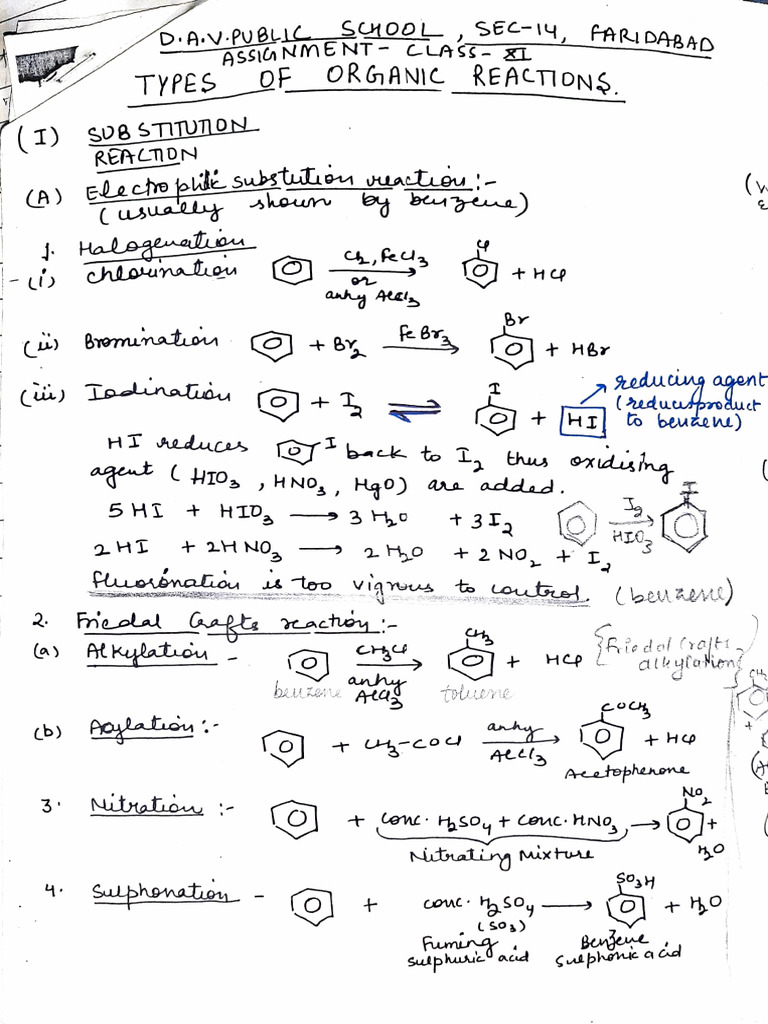 D.A.V. PUBLIC SCHOOL, SEC-14, FARIDABAD
ASSIGNMENT- CLASS- XI
TYPES OF ORGANIC REACTIONS.
(I) SUBSTITUTION
REACTION
(A) Electrophilic substution reaction:-
(usually shown by benzene)
1. Halogenation
-(i) Chlorination Cl2, FeCl3 or anhy AlCl3 Cl + HCl
(ii) Bromination + Br2 FeBr3 Br + HBr
(iii) Iodination + I2 ⇌ I + HI
reducing agent
(reduces product
to benzene)
HI reduces I back to I2 thus oxidising
agent (HIO3, HNO3, HgO) are added.
5HI + HIO3 → 3H2O + 3I2 I2 HIO3 I
2HI + 2HNO3 → 2H2O + 2NO2 + I2
fluorónation is too vigrous to control. (benzene)
2. Friedal Crafts reaction:-
(a) Alkylation - CH3Cl anhy AlCl3 CH3 + HCl {Friedal Crafts alkylation}
benzene toluene
(b) Acylation:- + CH3-COCl anhy AlCl3 COCH3 + HCl
Acetophenone
3. Nitration :- + conc. H2SO4 + conc. HNO3 → NO2 + H2O
Nitrating Mixture
4. Sulphonation - + conc. H2SO4 → SO3H + H2O
(SO3)
Fuming Benzene
sulphuric acid sulphonic acid